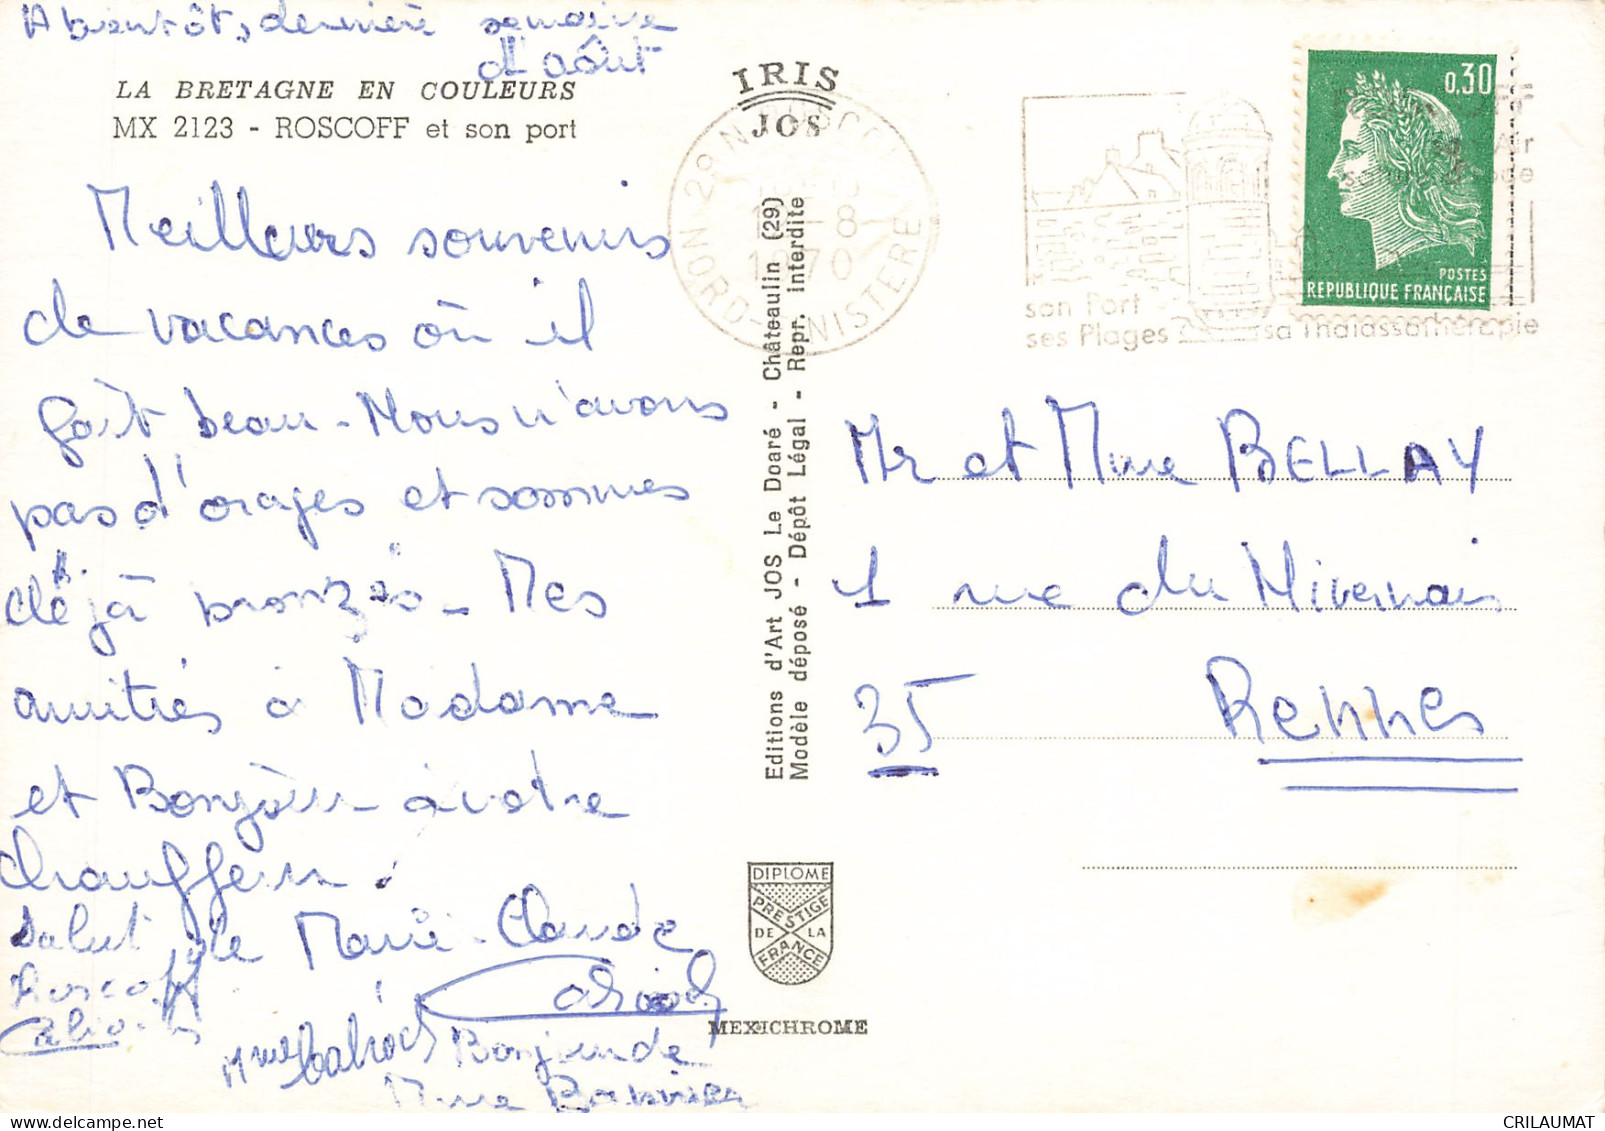 A bientôt, dernière semaine
d'août
LA BRETAGNE EN COULEURS
MX 2123 - ROSCOFF et son port
Meilleurs souvenirs
de vacances où il
fait beau - Nous n'avons
pas d'orages et sommes
déjà bronzés - Mes
amitiés à Madame
et Bonjour à votre
chauffeur.
Salut de Marie-Claude
Roscoff
Bonjour de
Mme
IRIS
JOS
Editions d'Art JOS Le Doaré - Châteaulin (29)
Modèle déposé - Dépôt Légal - Repr. interdite
DIPLOME
PRESTIGE
DE LA
FRANCE
MEXICHROME
29 N ROSCOFF
8
1970
NORD-FINISTERE
son Port
ses Plages
sa Thalassothérapie
Air
0,30
POSTES
REPUBLIQUE FRANÇAISE
Mr et Mme BELLAY
1 rue du Nivernais
35 Rennes
CRILAUMAT